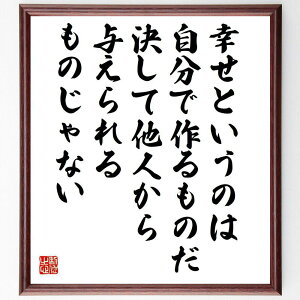 幸せというのは
自分で作るものだ
決して他人から
与えられる
ものじゃない